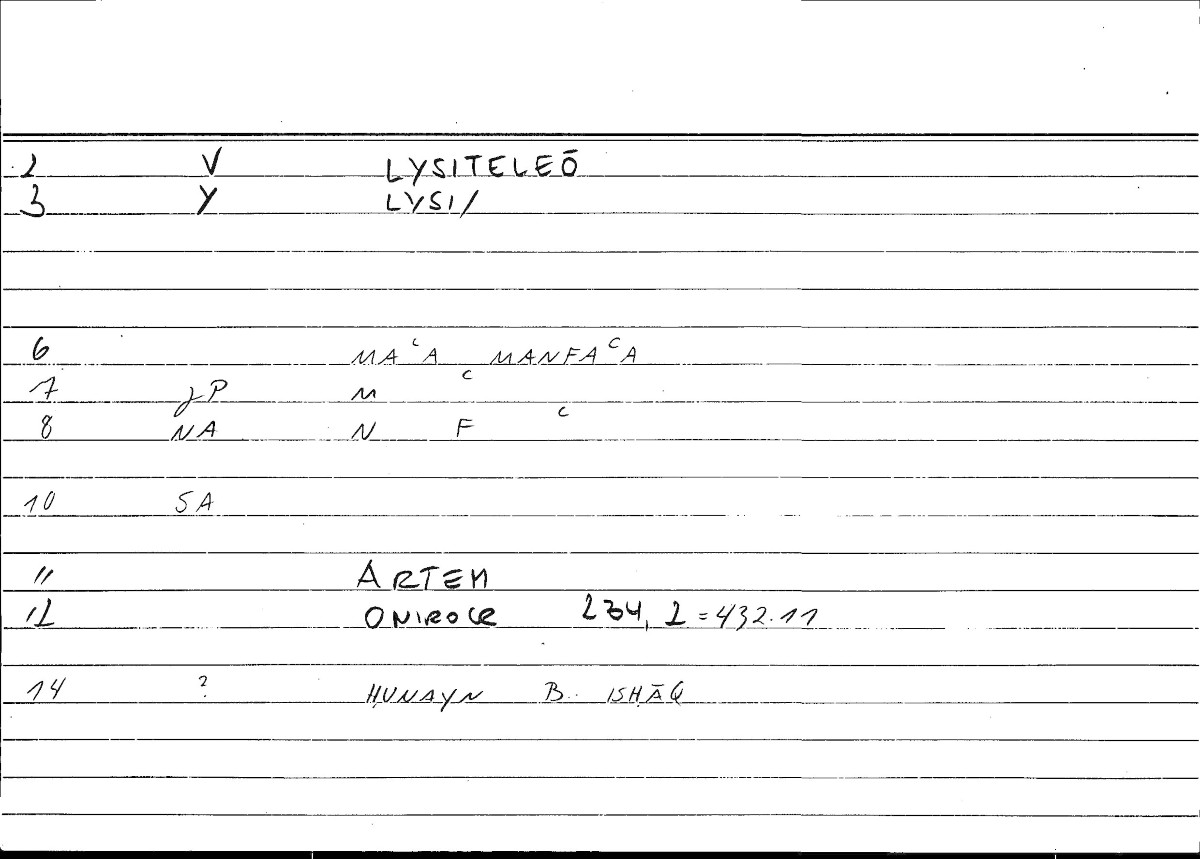 2 V LYSITELEŌ
3 Y LYSI/
6 MAʿA MANFAʿA
7 JP M ʿ
8 NA N F ʿ
10 SA
11 ARTEM
12 ONIROCR 234, 2 = 432.11
14 ? ḤUNAYN B. ISḤĀQ